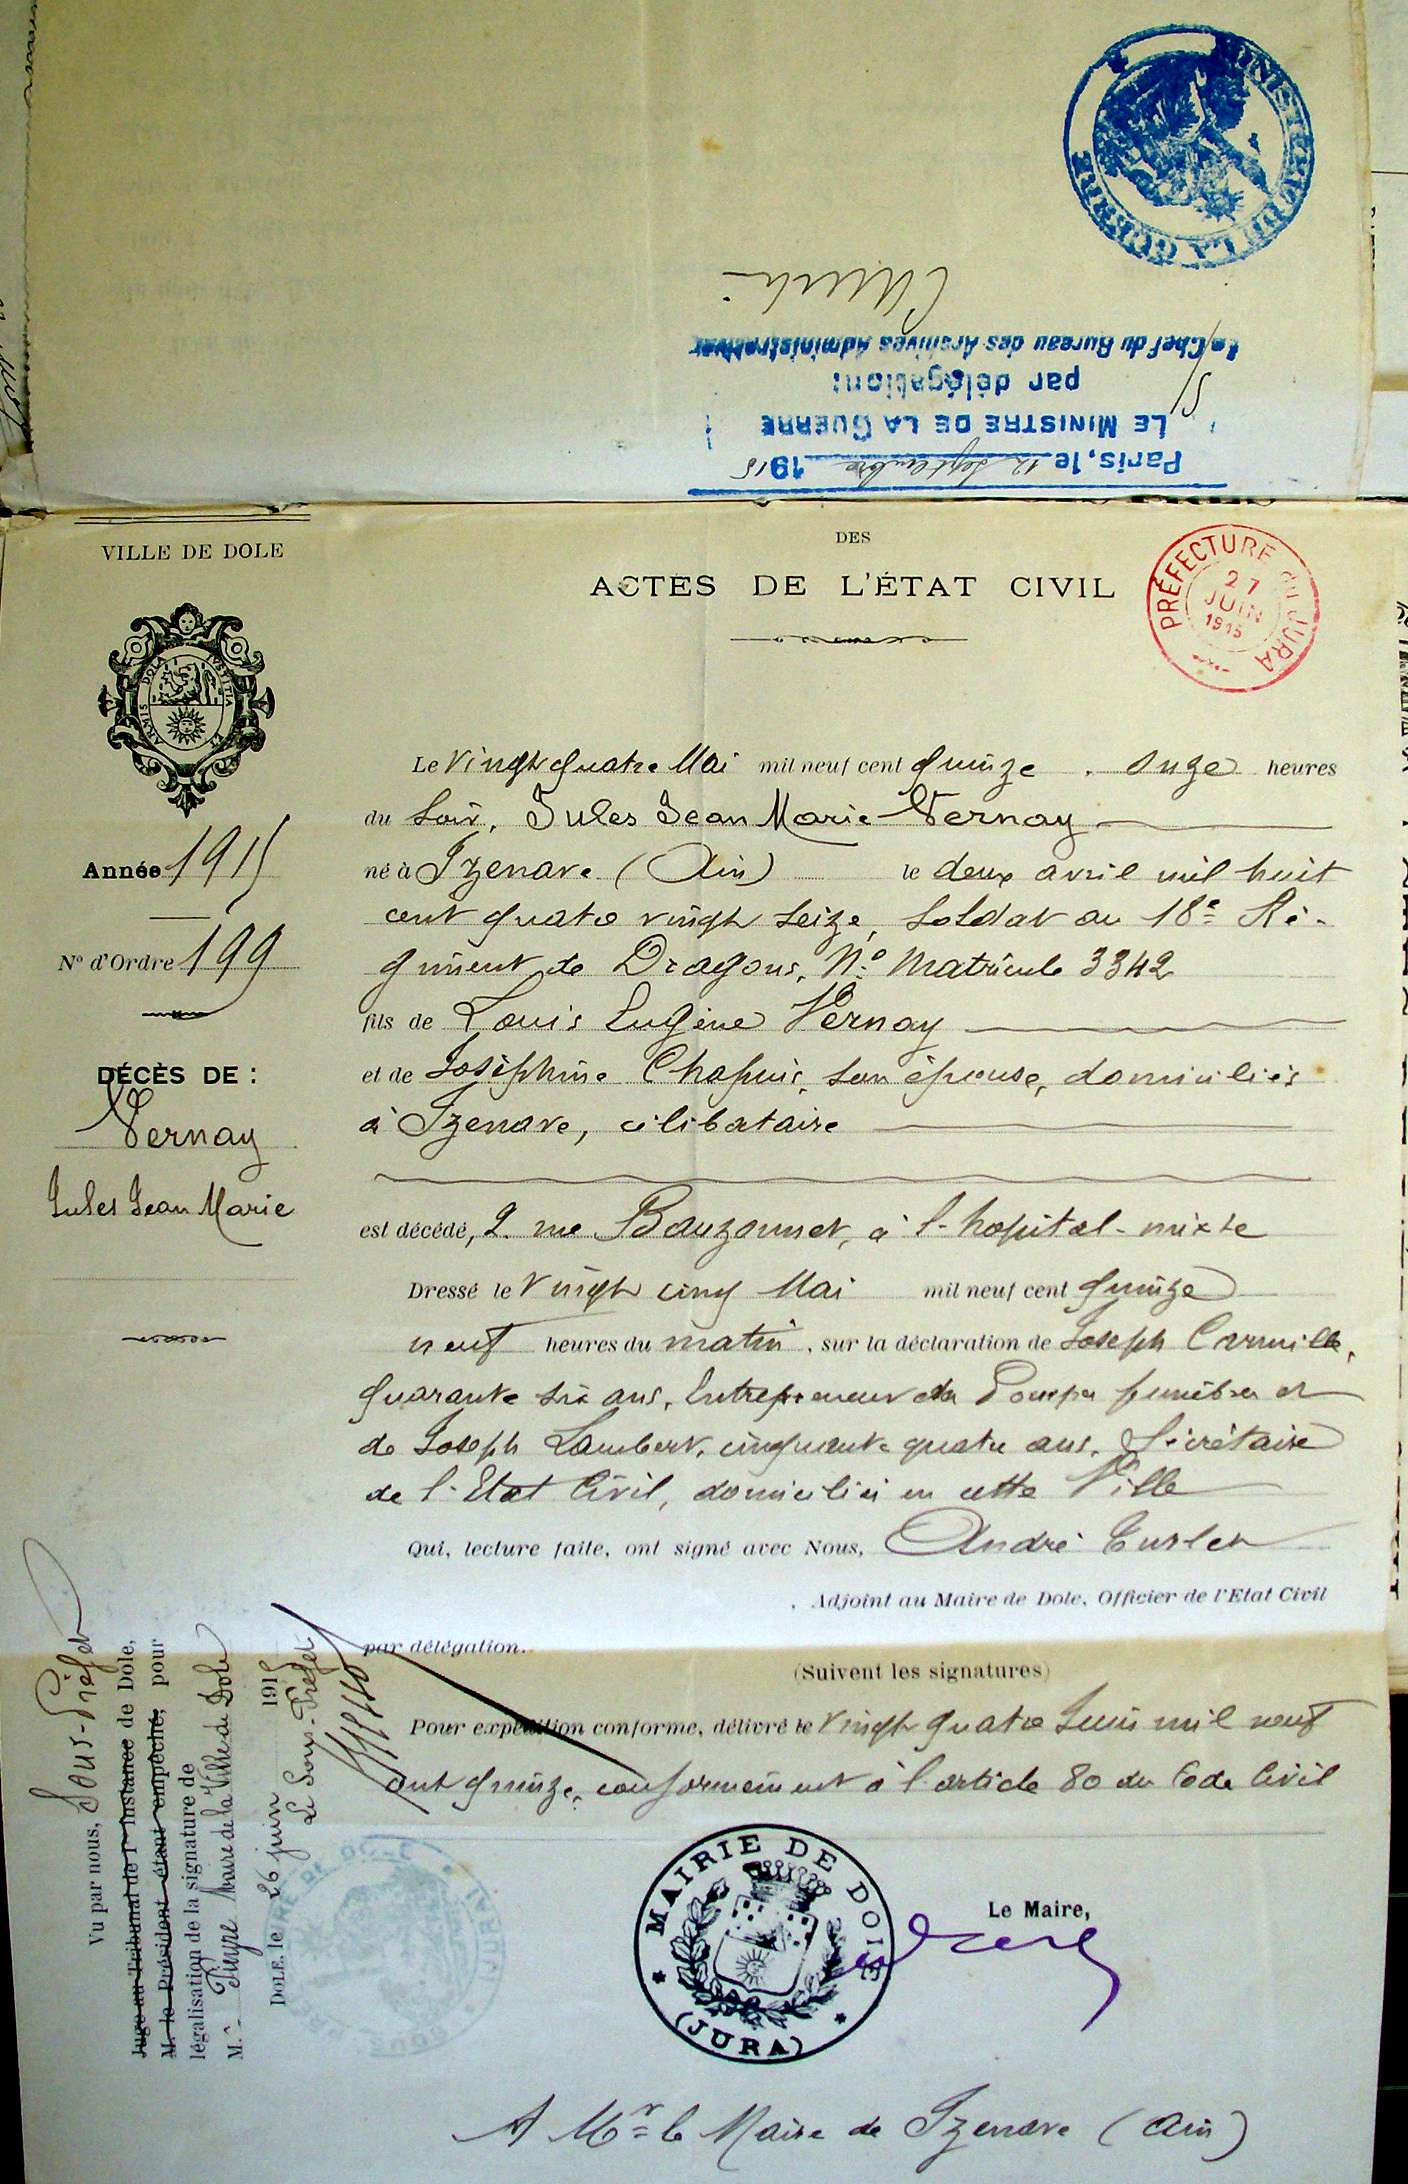 MINISTÈRE DE LA GUERRE
Le Chef du Bureau des Archives Administratives
par délégation:
LE MINISTRE DE LA GUERRE
Paris, le 12 Septembre 1915
VILLE DE DOLE
DES
ACTES DE L'ÉTAT CIVIL
PRÉFECTURE DU JURA
27
JUIN
1915
Le Vingt quatre Mai mil neuf cent quinze . onze heures
du soir, Jules Jean Marie Vernay
né à Izenave (Ain) le deux avril mil huit
cent quatre vingt seize, soldat au 18e Ré-
giment de Dragons, No Matricule 3342
fils de Louis Eugène Vernay
et de Joséphine Chapuis, son épouse, domiciliés
à Izenave, célibataire
est décédé, 2 rue Bauzonnet, à l'hopital-mixte
Dressé le Vingt cinq Mai mil neuf cent quinze
neuf heures du matin, sur la déclaration de Joseph
quarante six ans, Entrepreneur des Pompes funèbres et
de Joseph Lambert, cinquante quatre ans, Secrétaire
de l'Etat Civil, domiciliés en cette Ville
Qui, lecture faite, ont signé avec Nous, André
, Adjoint au Maire de Dole, Officier de l'Etat Civil
par délégation.
(Suivent les signatures)
Pour expédition conforme, délivré le Vingt quatre Juin mil neuf
cent quinze, conformément à l'article 80 du Code Civil
Le Maire,
MAIRIE DE DOLE
(JURA)
A Mr le Maire de Izenave (Ain)
Année 1915
No d'Ordre 199
DÉCÈS DE :
Vernay
Jules Jean Marie
Vu par nous, Sous-Préfet
Juge au Tribunal de 1re Instance de Dole,
M. le Président étant empêché, pour
légalisation de la signature de
M. Maire de la Ville de Dole
DOLE, le 26 juin 1915
Le Sous-Préfet